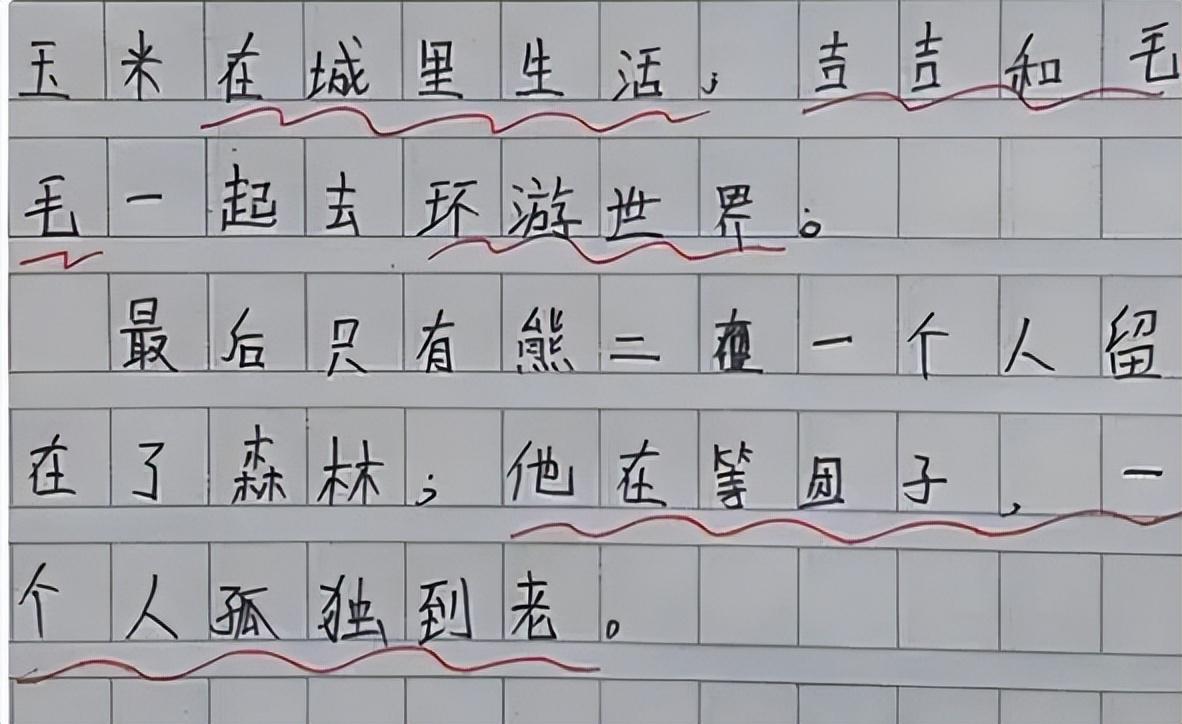 玉米在城里生活，吉吉和毛
毛一起去环游世界。
最后只有熊二一个人留
在了森林；他在等团子，一
个人孤独到老。